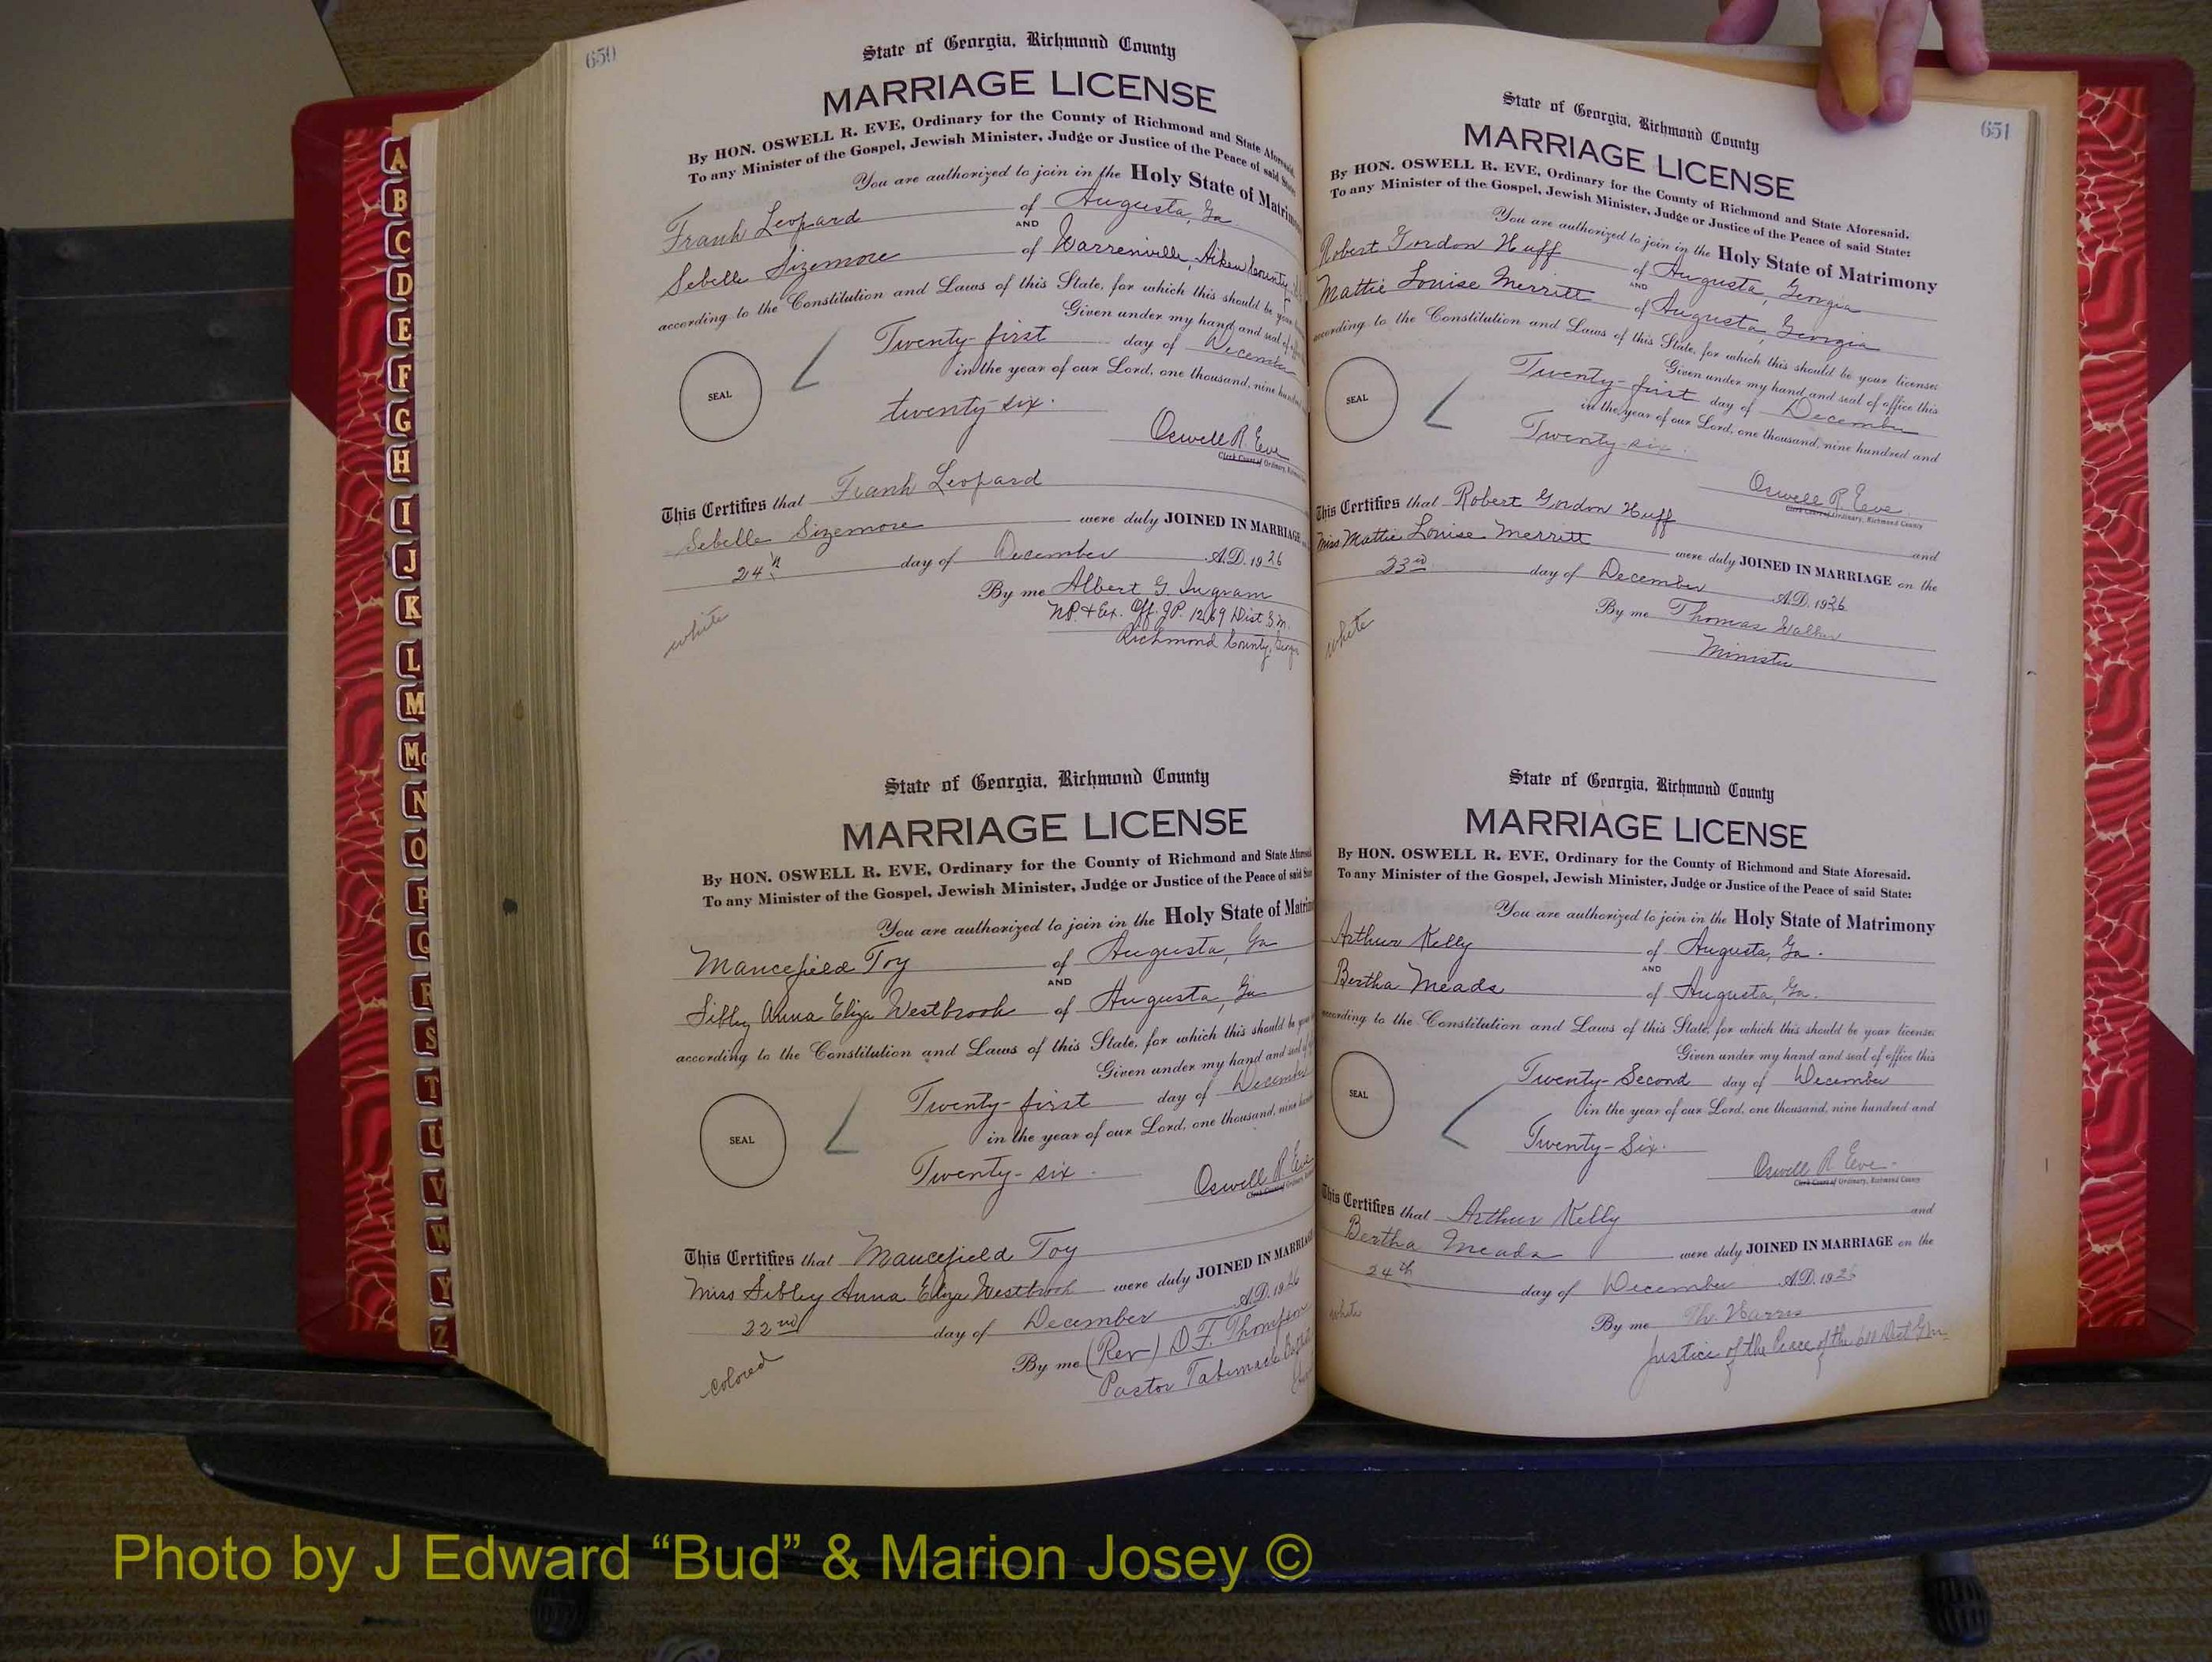 A
B
C
D
E
F
G
H
I
J
K
L
M
Mc
N
O
P
Q
R
S
T
U
V
W
Y
Z
650
State of Georgia, Richmond County
MARRIAGE LICENSE
By HON. OSWELL R. EVE, Ordinary for the County of Richmond and State Aforesaid.
To any Minister of the Gospel, Jewish Minister, Judge or Justice of the Peace of said State
You are authorized to join in the Holy State of Matrimo
Frank Leopard of Augusta, Ga
AND
Sebelle Sizemore of Warrenville, Aiken County,
according to the Constitution and Laws of this State, for which this should be your
Given under my hand and seal of
SEAL
Twenty-first day of December
in the year of our Lord, one thousand, nine hundred
twenty-six.
Oswell R. Eve
Clerk Court of Ordinary,
This Certifies that Frank Leopard
Sebelle Sizemore were duly JOINED IN MARRIAGE
24th day of December A.D. 1926
By me Albert G. Ingram
N.P. & Ex. Off. J.P. 1269 Dist G.M.
Richmond County, Georgia
white
State of Georgia, Richmond County
MARRIAGE LICENSE
By HON. OSWELL R. EVE, Ordinary for the County of Richmond and State Afores
To any Minister of the Gospel, Jewish Minister, Judge or Justice of the Peace of said State
You are authorized to join in the Holy State of Matrim
Mancefield Toy of Augusta, Ga
AND
Sibley Anna Eliza Westbrook of Augusta, Ga
according to the Constitution and Laws of this State, for which this should be your
Given under my hand and seal of
SEAL
Twenty-first day of December
in the year of our Lord, one thousand, nine hundred
Twenty-six.
Oswell R. Eve
Clerk Court of Ordinary,
This Certifies that Mancefield Toy
Miss Sibley Anna Eliza Westbrook were duly JOINED IN MARRIAGE
22nd day of December A.D. 1926
By me (Rev) D.F. Thompson
Pastor Tabernacle Baptist
colored
651
State of Georgia, Richmond County
MARRIAGE LICENSE
By HON. OSWELL R. EVE, Ordinary for the County of Richmond and State Aforesaid.
To any Minister of the Gospel, Jewish Minister, Judge or Justice of the Peace of said State:
You are authorized to join in the Holy State of Matrimony
Robert Gordon Huff of Augusta, Georgia
AND
Mattie Louise Merritt of Augusta, Georgia
according to the Constitution and Laws of this State, for which this should be your license:
Given under my hand and seal of office this
SEAL
Twenty-first day of December
in the year of our Lord, one thousand, nine hundred and
Twenty-six.
Oswell R. Eve
Clerk Court of Ordinary, Richmond County
This Certifies that Robert Gordon Huff and
Miss Mattie Louise Merritt were duly JOINED IN MARRIAGE on the
23rd day of December A.D. 1926
By me Thomas Walker
Minister
white
State of Georgia, Richmond County
MARRIAGE LICENSE
By HON. OSWELL R. EVE, Ordinary for the County of Richmond and State Aforesaid.
To any Minister of the Gospel, Jewish Minister, Judge or Justice of the Peace of said State:
You are authorized to join in the Holy State of Matrimony
Arthur Kelly of Augusta, Ga.
AND
Bertha Meads of Augusta, Ga.
according to the Constitution and Laws of this State, for which this should be your license:
Given under my hand and seal of office this
SEAL
Twenty-Second day of December
in the year of our Lord, one thousand, nine hundred and
Twenty-Six.
Oswell R. Eve
Clerk Court of Ordinary, Richmond County
This Certifies that Arthur Kelly and
Bertha Meads were duly JOINED IN MARRIAGE on the
24th day of December A.D. 1926
By me Harris
Justice of the Peace of the Dist G.M.
white
Photo by J Edward “Bud” & Marion Josey ©